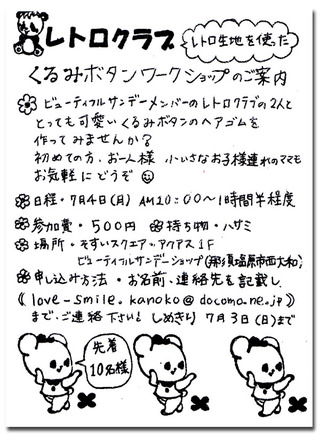 レトロクラブ
レトロ生地を使った
くるみボタンワークショップのご案内
ビューティフルサンデーメンバーのレトロクラブの2人と
とっても可愛いくるみボタンのヘアゴムを
作ってみませんか?
初めての方・お一人様 小いさなお子様連れのママも
お気軽にどうぞ
日程・7月4日(月) AM10:00~1時間半程度
参加費・500円 持ち物・ハサミ
場所・そすいスクエアーアクアス1F
ビューティフルサンデーショップ(那須塩原市西大和)
申し込み方法・お名前、連絡先を記載し
《love-smile.kanoko@docomo.ne.jp》
まで、ご連絡下さい! しめきり 7月3日(日)まで
先着
10名様